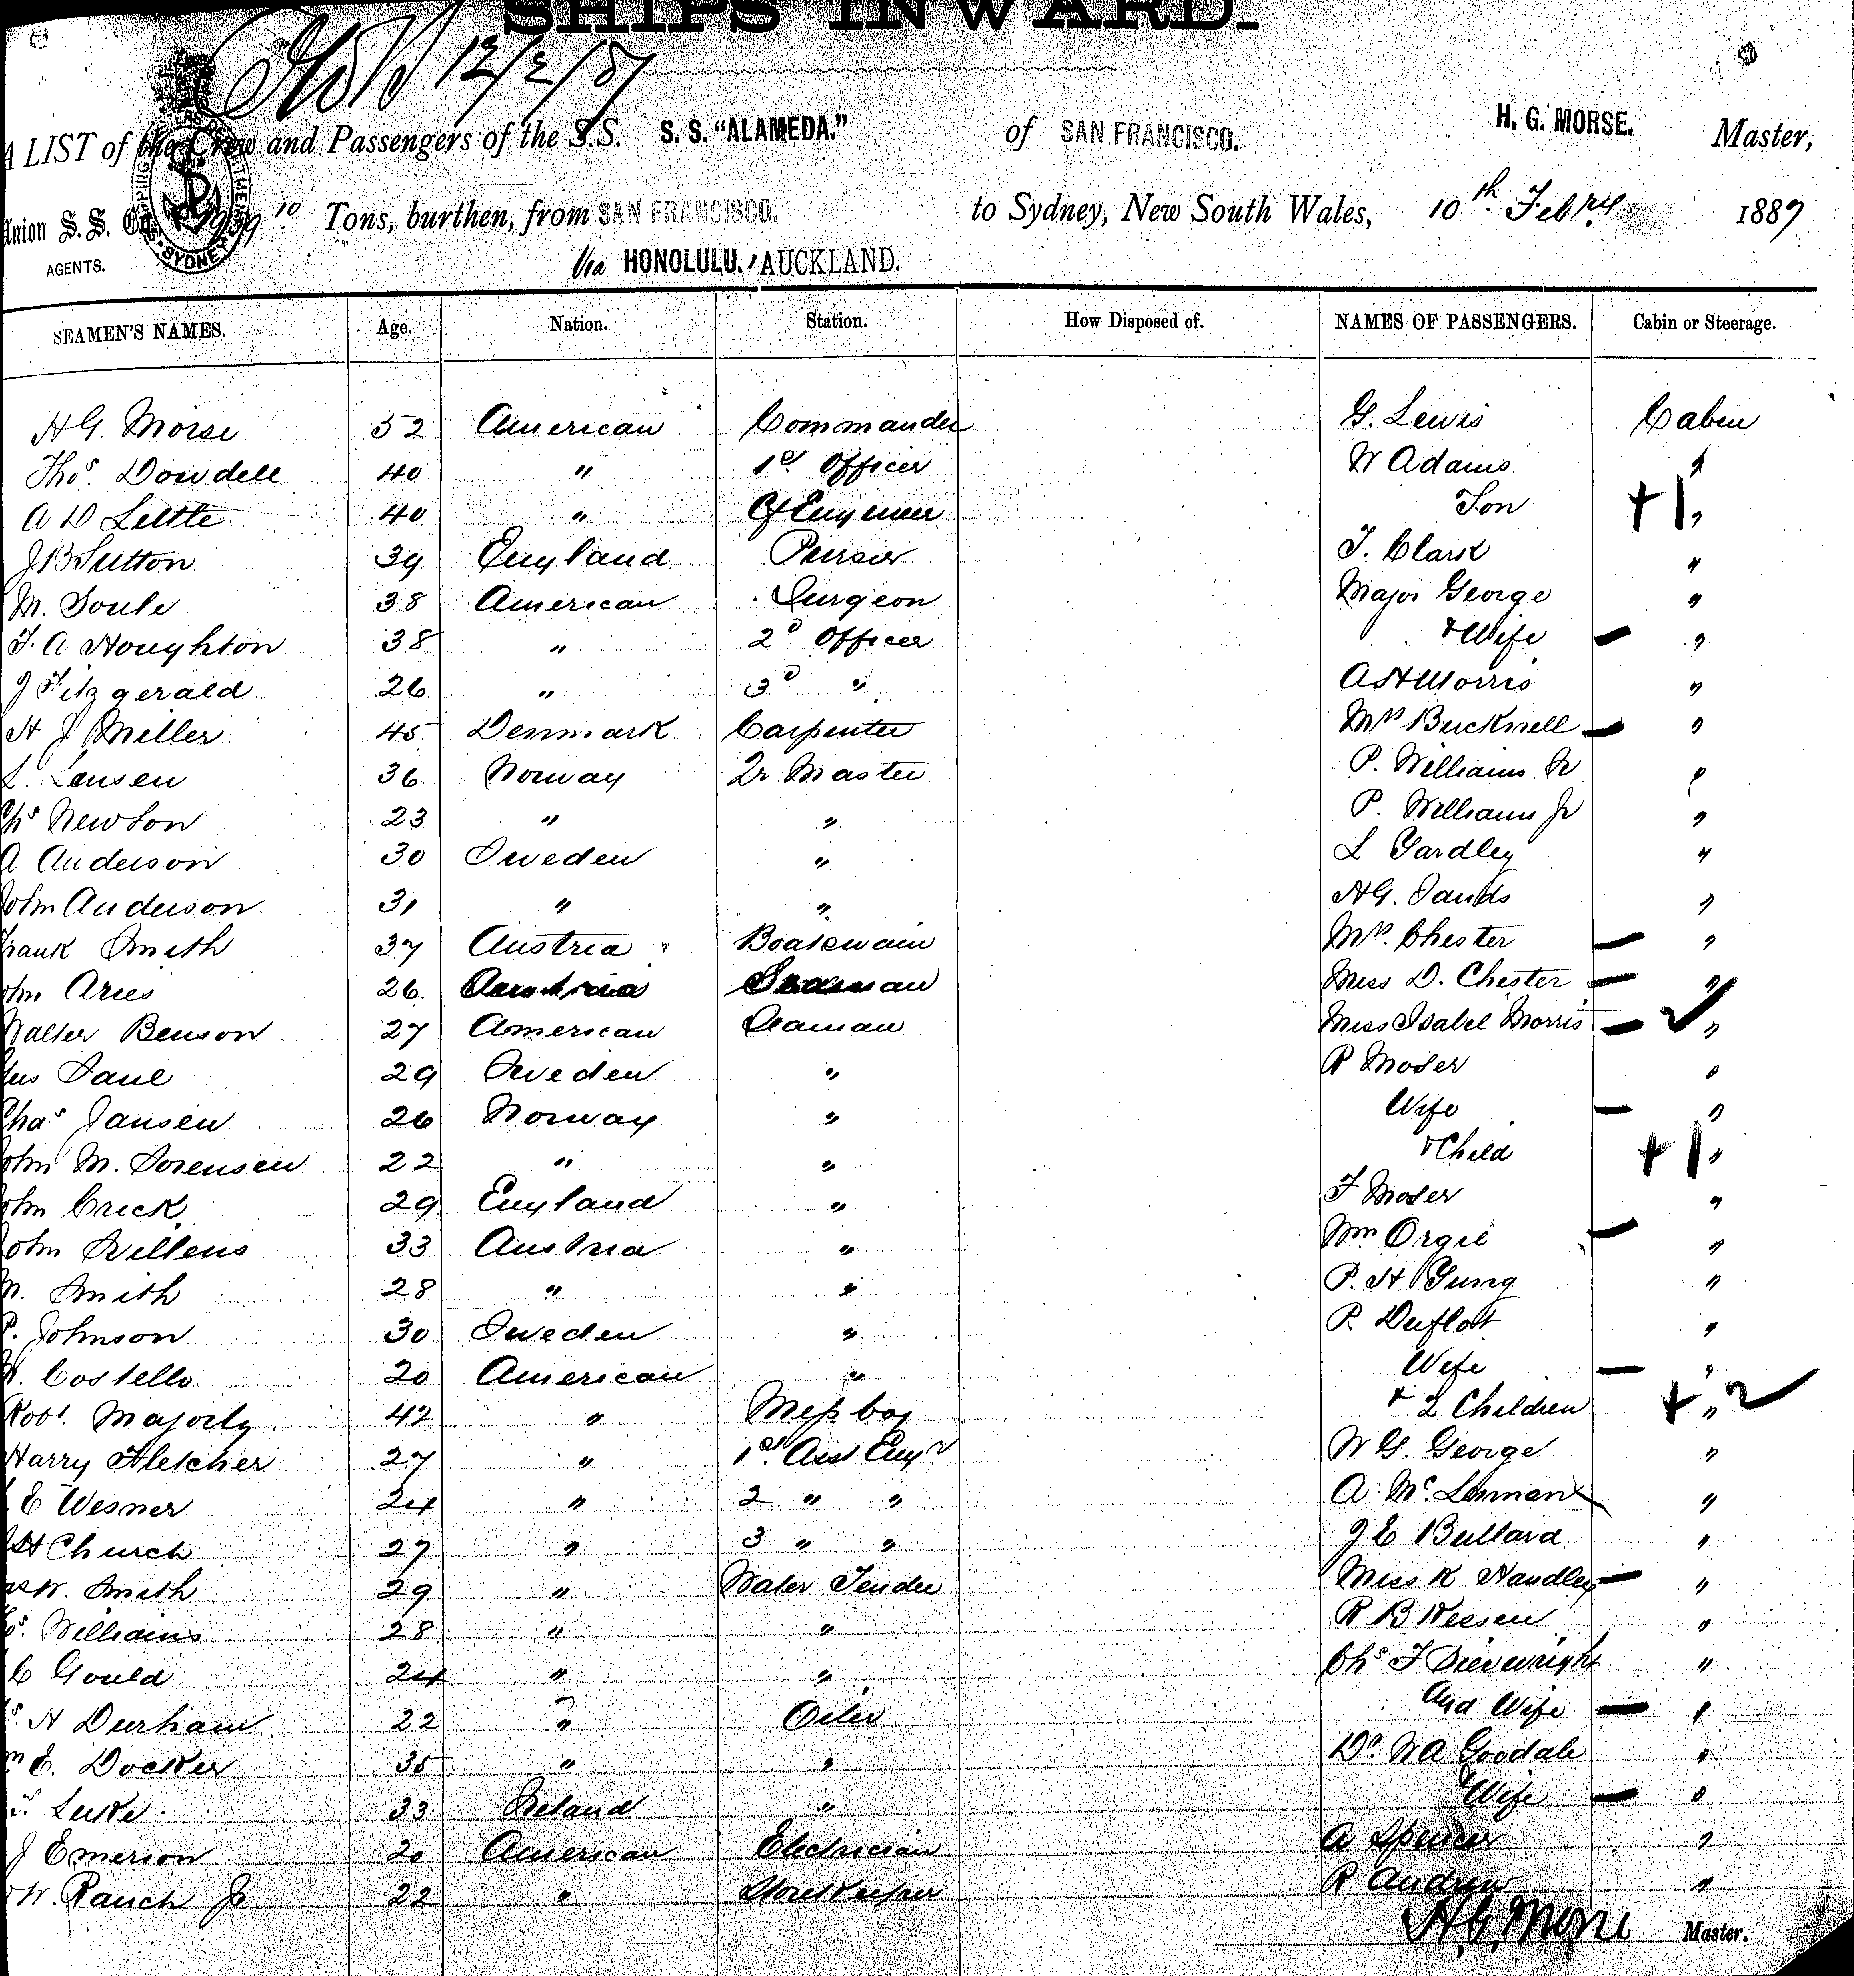 SHIPS INWARD.
12/2/87
A LIST of the Crew and Passengers of the S.S. S. S. "ALAMEDA." of SAN FRANCISCO. H. G. MORSE. Master,
Union S. S. Co. 1939 10 Tons, burthen, from SAN FRANCISCO. to Sydney, New South Wales, 10th Febry 1887
AGENTS. Via HONOLULU. AUCKLAND.
SYDNEY
SEAMEN'S NAMES. Age. Nation. Station. How Disposed of. NAMES OF PASSENGERS. Cabin or Steerage.
H G. Morse 52 American Commander G. Lewis Cabin
Thos. Dowdell 40 " 1st Officer W Adams "
A D Little 40 " Cf Engineer Son +1 "
J B Sutton 39 England Purser T. Clark "
M. Soule 38 American Surgeon Major George "
T. A Houghton 38 " 2d Officer & Wife — "
J Fitzgerald 26 " 3d " A H Morris "
H J Miller 45 Denmark Carpenter Mrs Bucknell — "
L. Lensen 36 Norway Qr Master P. Williams Sr "
Chs Newton 23 " " P. Williams Jr "
A Anderson 30 Sweden " L Yardley "
John Anderson 31 " " H G. Sands "
Frank Smith 37 Austria Boatswain Mrs. Chester — "
John Aries 26 Austria Seaman Miss D. Chester — "
Walter Benson 27 American Seaman Miss Isabel Morris — "
Gus Saul 29 Sweden " R Moser "
Chas Jansen 26 Norway " Wife — "
John M. Sorensen 22 " " & Child +1 "
John Crick 29 England " F Moser "
John Willens 33 Austria " Wm Orgil — "
M. Smith 28 " " P. H Gung "
P. Johnson 30 Sweden " P. Duflot "
Costello 20 American " Wife — "
Robt. Majorly 42 " Mess boy & 2 Children + 2 "
Harry Fletcher 27 " 1st Asst Engr W G. George "
E Wesner 24 " 2 " " A. McLennan "
H Church 27 " 3 " " J E Bullard "
W. Smith 29 " Water Tender Miss K Handley — "
Williams 28 " " R B Nessen "
C Gould 24 " " Chs F "
H Durham 22 " Oiler And Wife — "
E. Docker 35 " " Dr. W A Goodale "
Luke 33 Ireland " Wife — "
J Emerson 20 American Electrician A Spencer "
W. Rauch Jr 22 " Storekeeper R Andrew "
H. G. Morse Master.